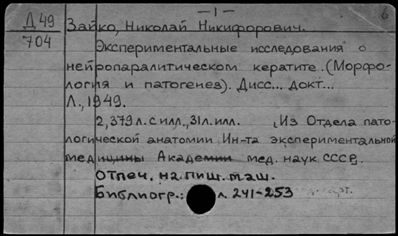 – 1 –
6
Д 49
704
Зайко, Николай Никифорович.
Экспериментальные исследования о
нейропаралитическом кератите. (Морфо-
логия и патогенез). Дисс... докт...
Л., 1949.
2, 379 л. с илл., 31 л. илл. (Из Отдела пато-
логической анатомии Ин-та экспериментальной
медицины Академии мед. наук СССР).
Отпеч. на пиш. маш.
Библиогр.: л 241-253